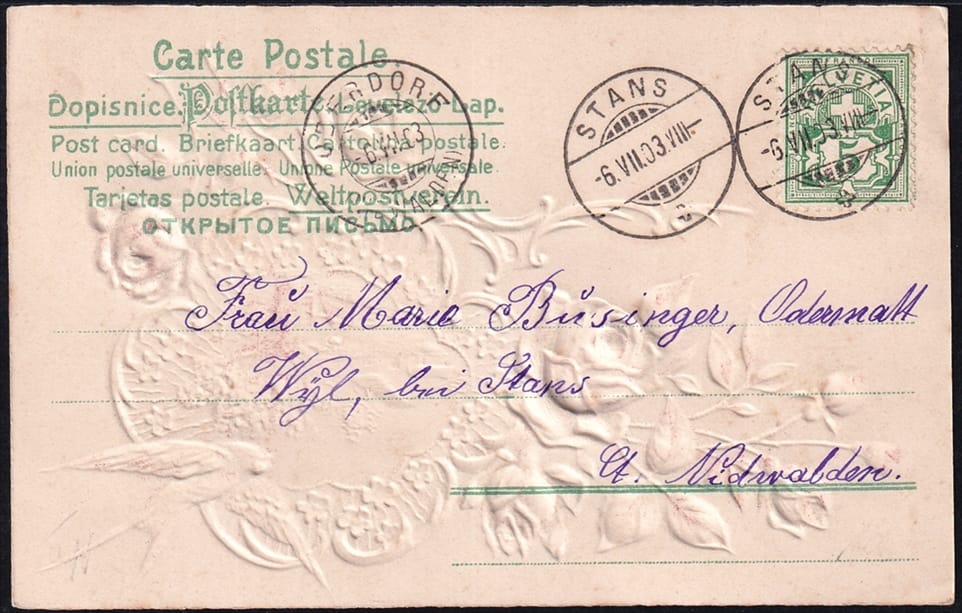 Carte Postale.
Dopisnice. Postkarte. Levelező-Lap.
Post card. Briefkaart. Cartolina postale.
Union postale universelle. Unione Postale Universale.
Tarjetas postale. Weltpostverein.
ОТКРЫТОЕ ПИСЬМО
-6.VII.03
STANS
-6.VII.03.VIII-
STANS
-6.VII.03.VIII-
HELVETIA
Frau Marie Büsinger, Odermatt
Wyl, bei Stans
Ct. Nidwalden.